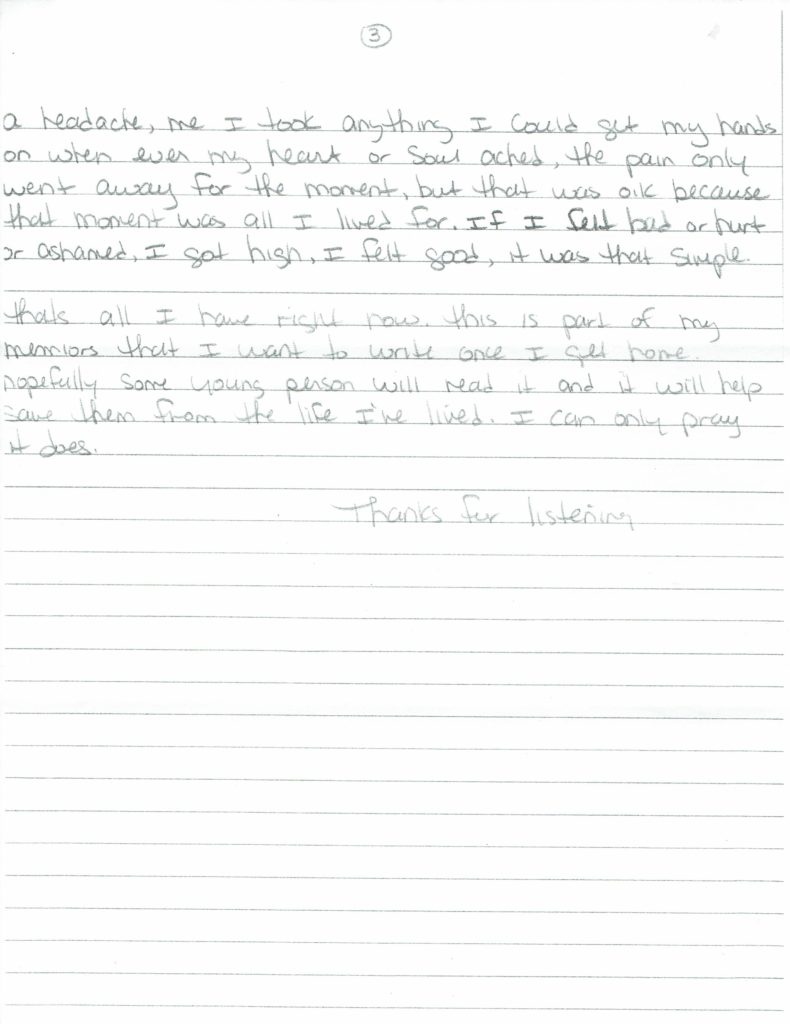 3
a headache, me I took anything I could get my hands
on when ever my heart or soul ached, the pain only
went away for the moment, but that was o.k because
that moment was all I lived for. If I felt bad or hurt
or ashamed, I got high, I felt good, it was that simple.
thats all I have right now. this is part of my
memriors that I want to write once I get home.
hopefully some young person will read it and it will help
save them from the life I've lived. I can only pray
it does.
Thanks for listening